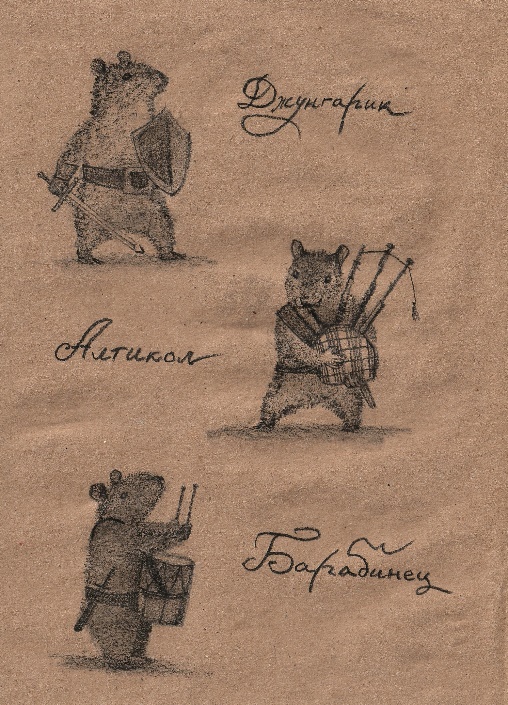 Джунгарик
Алтикол
Барабинец